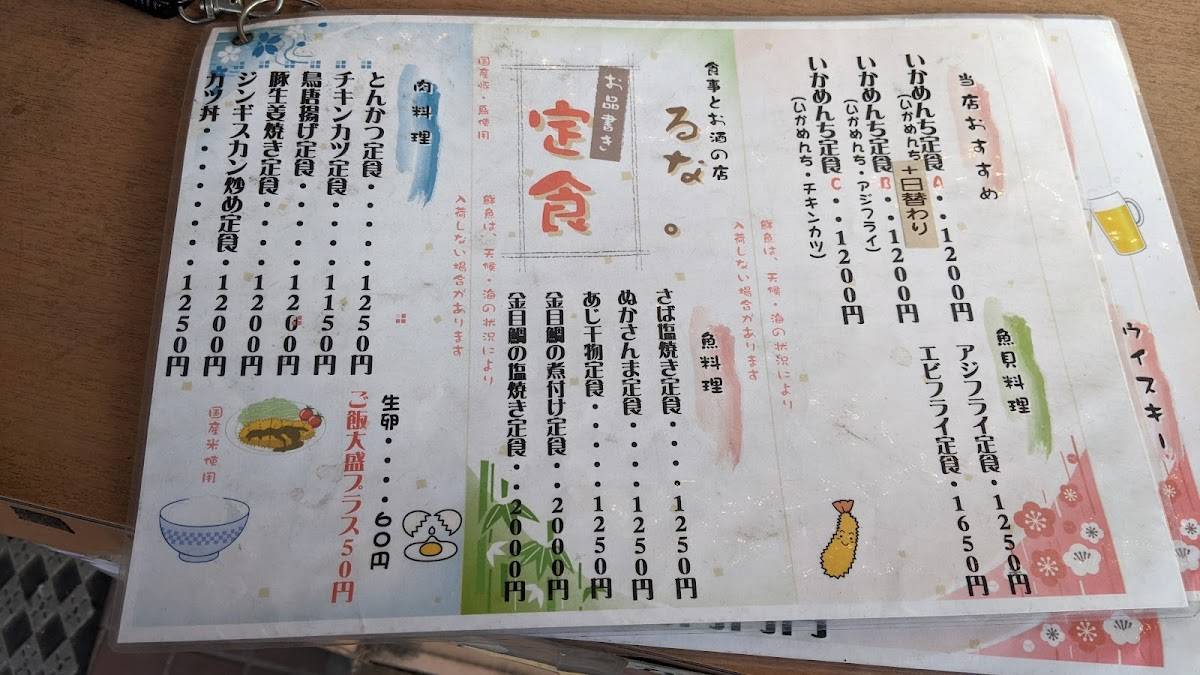 当店おすすめ
いかめんち定食A・・1200円
(いかめんち+日替わり
いかめんち定食B・・1200円
(いかめんち・アジフライ)
いかめんち定食C・・1200円
(いかめんち・チキンカツ)
魚貝料理
アジフライ定食・1250円
エビフライ定食・1650円
鮮魚は、天候・海の状況により
入荷しない場合があります
食事とお酒の店
るな。
お品書き
定食
国産豚・鳥使用
魚料理
さば塩焼き定食・・・1250円
ぬかさんま定食・・・・1250円
あじ干物定食・・・・・1250円
金目鯛の煮付け定食・・2000円
金目鯛の塩焼き定食・・2000円
鮮魚は、天候・海の状況により
入荷しない場合があります
肉料理
とんかつ定食・・・・・1250円
チキンカツ定食・・・・1150円
鳥唐揚げ定食・・・・・1200円
豚牛姜焼き定食・・・・1200円
ジンギスカン炒め定食・1200円
カツ丼・・・・・・・・1250円
生卵・・・・60円
ご飯大盛プラス50円
国産米使用
ウイスキー